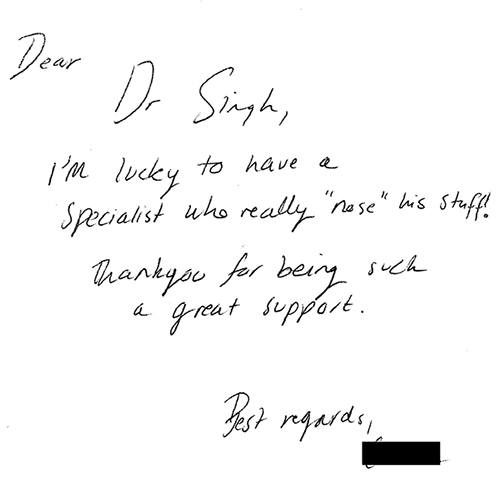 Dear
Dr Singh,
I'm lucky to have a
specialist who really "nose" his stuff!
Thankyou for being such
a great support.
Best regards,